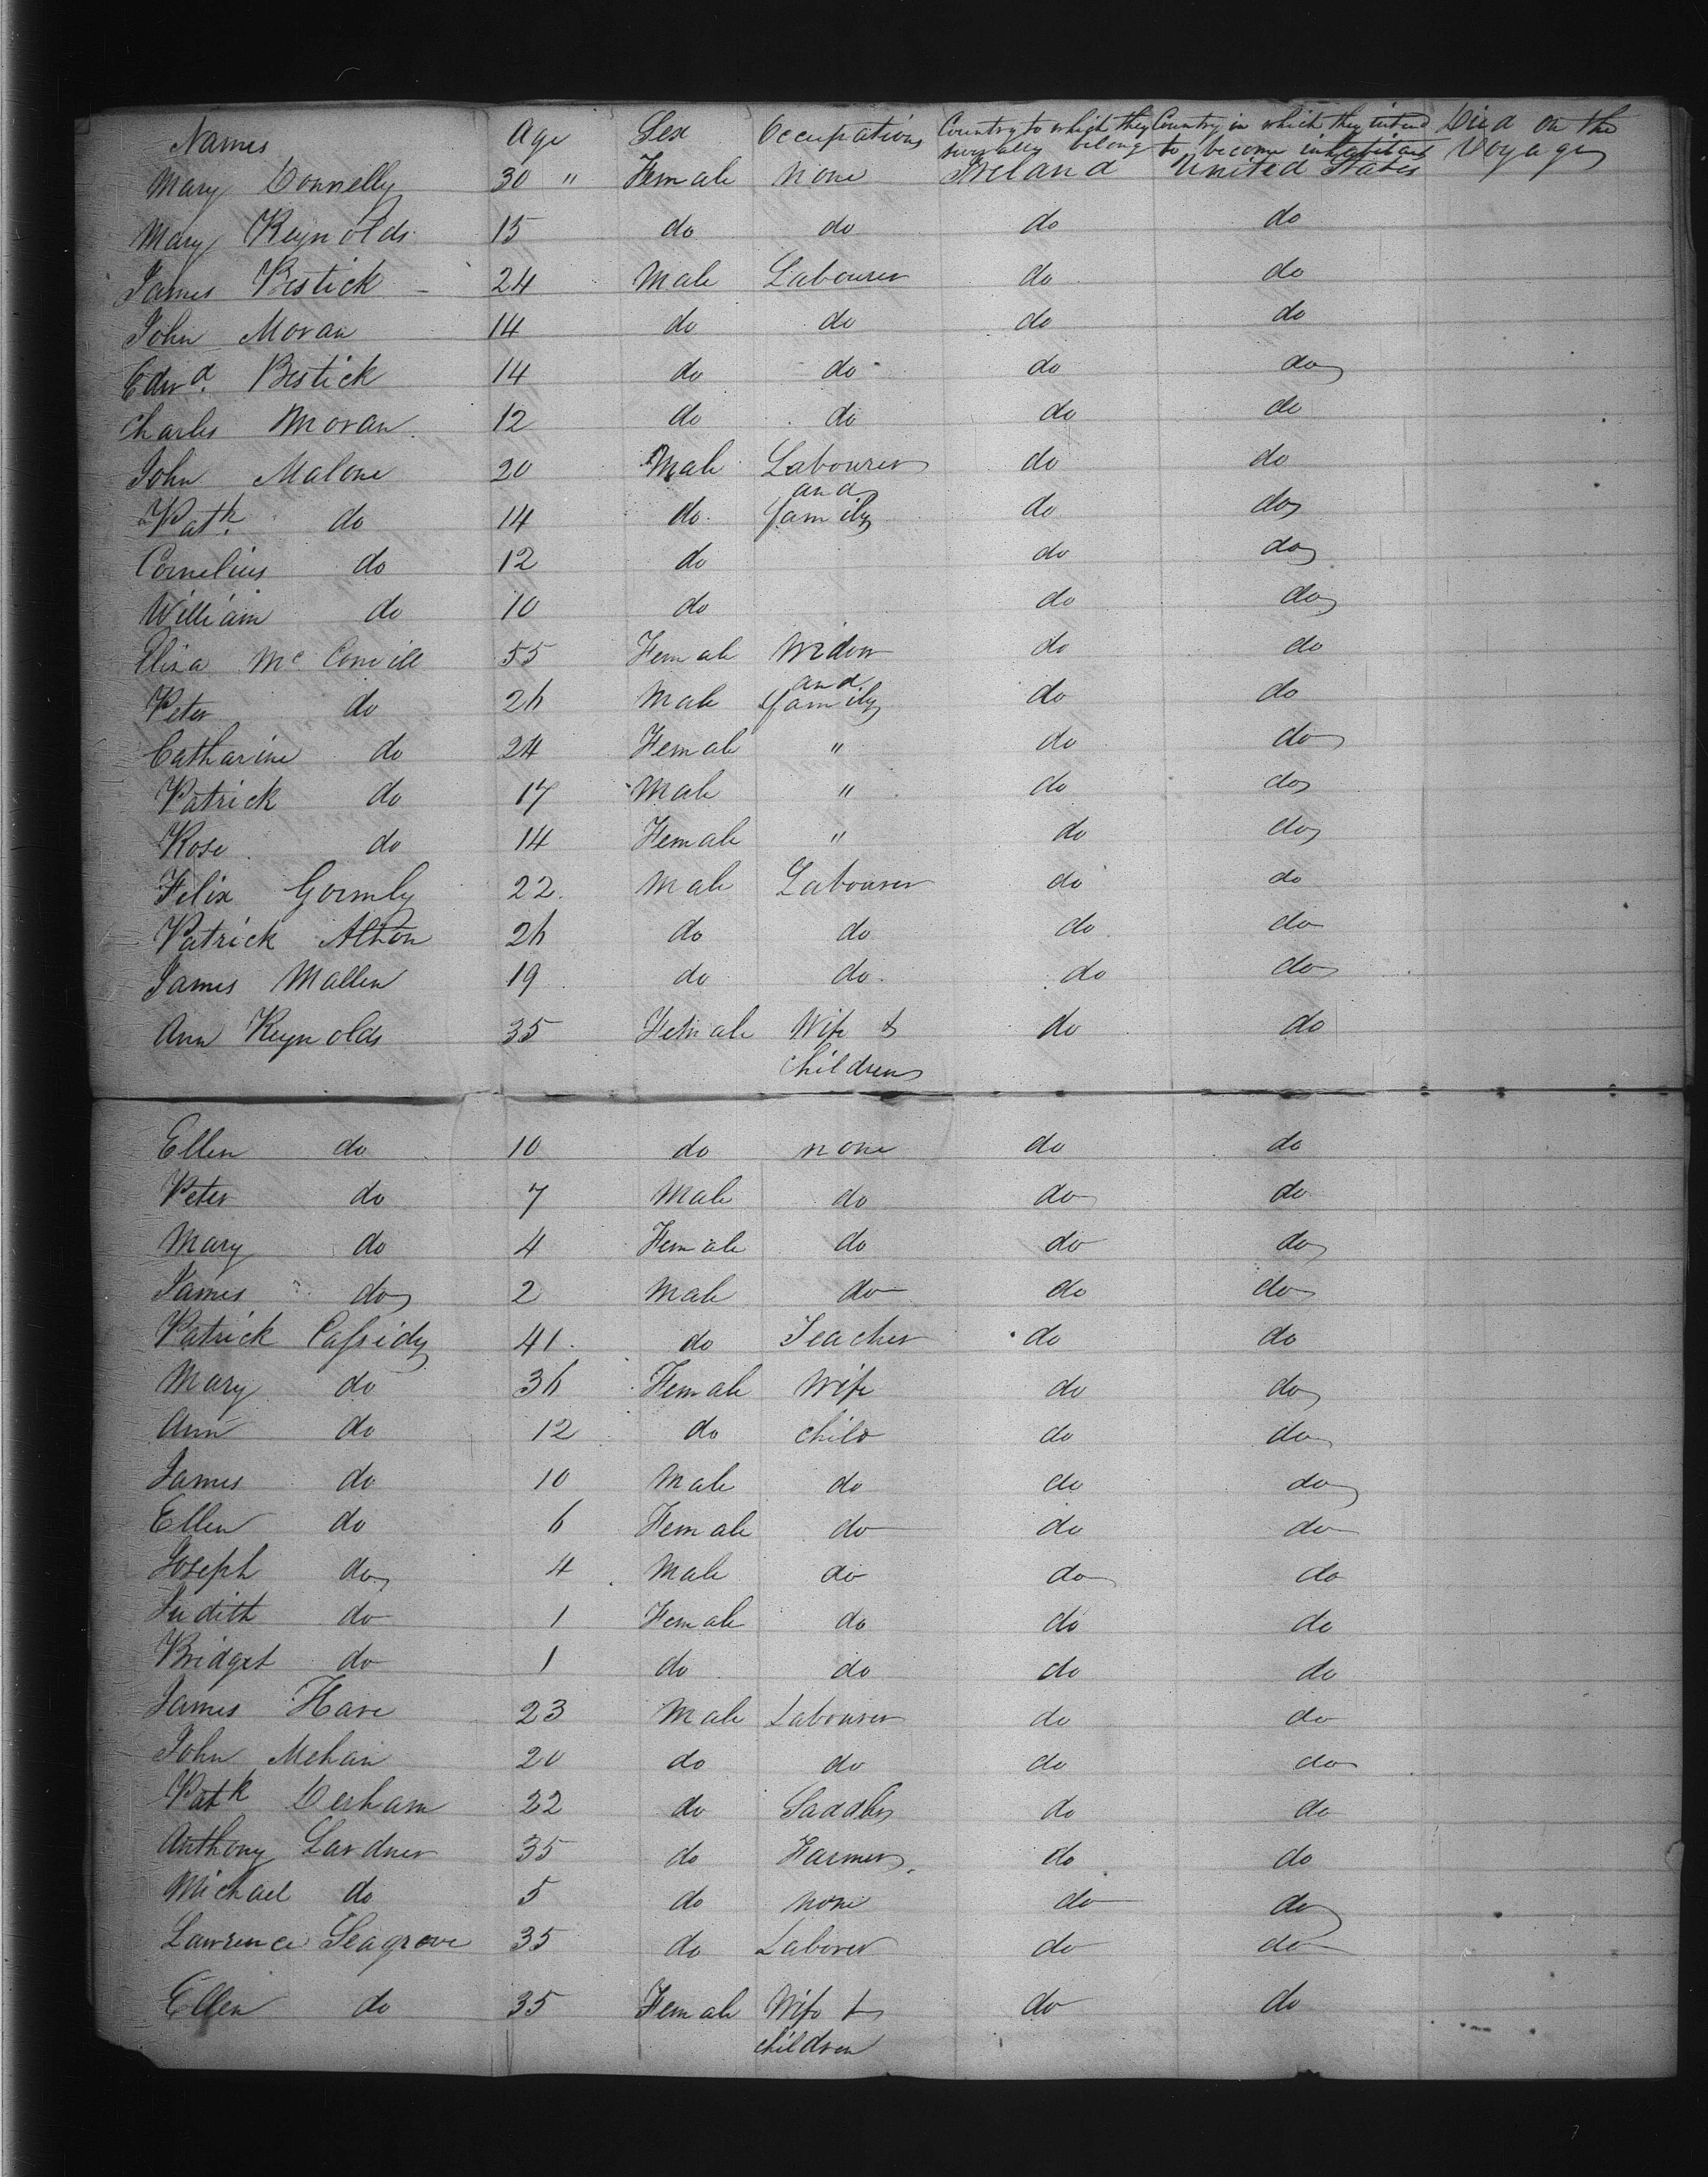 Names Age Sex Occupations Country to which they severally belong Country in which they intend to become inhabitants Died on the Voyage
Mary Donnelly 30 " Female None Ireland United States
Mary Reynolds 15 do do do do
James Bestick 24 Male Labourer do do
John Moran 14 do do do do
Edwd. Bestick 14 do do do do
Charles Moran 12 do do do do
John Malone 20 Male Labourer do do
Patk. do 14 do and family do do
Cornelius do 12 do do do
William do 10 do do do
Eliza McConvill 55 Female Widow do do
Peter do 26 Male and family do do
Catharine do 24 Female " do do
Patrick do 17 Male " do do
Rose do 14 Female " do do
Felix Gormly 22 Male Labourer do do
Patrick 26 do do do do
James Mallen 19 do do do do
Ann Reynolds 35 Female Wife & do do
children
Ellen do 10 do none do do
Peter do 7 Male do do do
Mary do 4 Female do do do
James do 2 Male do do do
Patrick Cassidy 41 do Teacher do do
Mary do 36 Female Wife do do
Ann do 12 do child do do
James do 10 Male do do do
Ellen do 6 Female do do do
Joseph do 4 Male do do do
Judith do 1 Female do do do
Bridget do 1 do do do do
James Hare 23 Male Labourer do do
John Mehan 20 do do do do
Patk Derham 22 do Saddler do do
Anthony Lardner 35 do Farmer do do
Michael do 5 do none do do
Lawrence Seagrove 35 do Laborer do do
Ellen do 35 Female Wife & do do
children